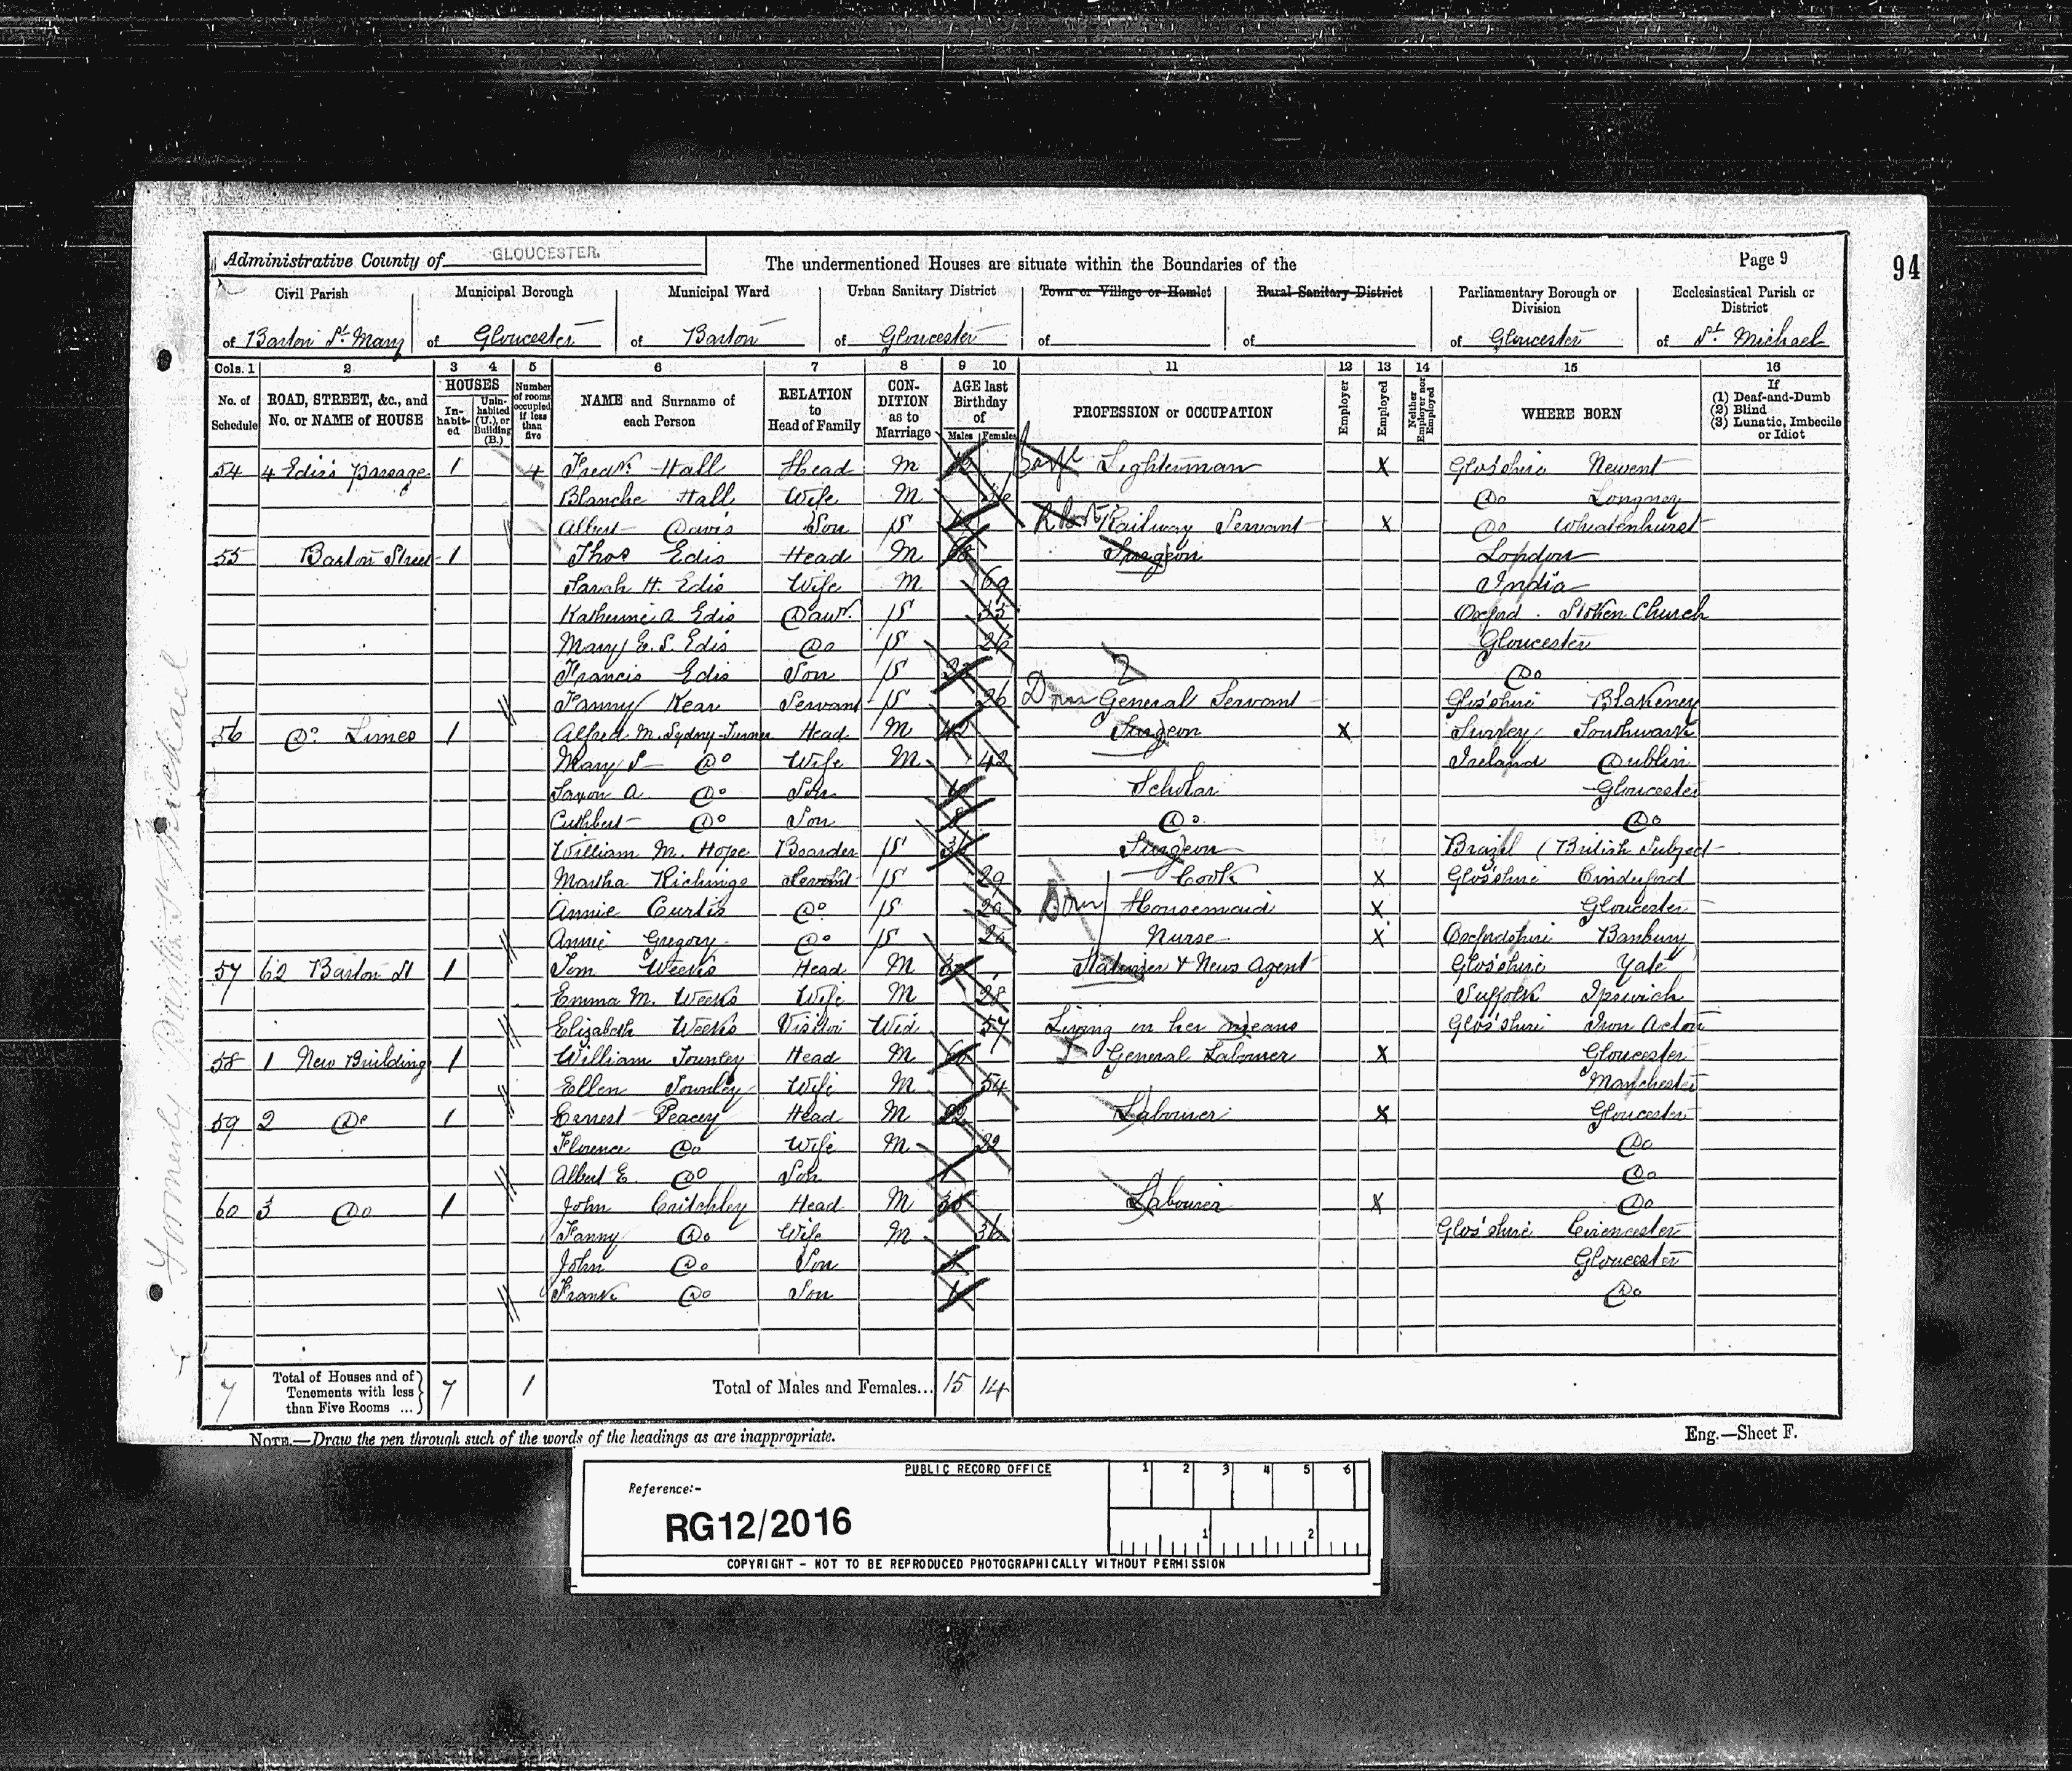 Administrative County of GLOUCESTER.
The undermentioned Houses are situate within the Boundaries of the
Page 9
94
Civil Parish
Municipal Borough
Municipal Ward
Urban Sanitary District
Town or Village or Hamlet
Rural Sanitary District
Parliamentary Borough or Division
Ecclesiastical Parish or District
of Barton St. Mary
of Gloucester
of Barton
of Gloucester
of
of
of Gloucester
of St. Michael
Cols. 1 2 3 4 5 6 7 8 9 10 11 12 13 14 15 16
No. of Schedule
ROAD, STREET, &c., and No. or NAME of HOUSE
HOUSES
In-habit-ed
Unin-habited (U.), or Building (B.)
Number of rooms occupied if less than five
NAME and Surname of each Person
RELATION to Head of Family
CON-DITION as to Marriage
AGE last Birthday of
Males Females
PROFESSION or OCCUPATION
Employer
Employed
Neither Employer nor Employed
WHERE BORN
If
(1) Deaf-and-Dumb
(2) Blind
(3) Lunatic, Imbecile or Idiot
54 4 Edis's Passage 1 4 Fredk. Hall Head M Barge Lighterman X Glos'shire Newent
Blanche Hall Wife M Do Longney
Albert Davis Son S Railway Servant X Do Wheatenhurst
55 Barton Street 1 Thos Edis Head M Surgeon London
Sarah H. Edis Wife M 69 India
Katherine A. Edis Dawr. S 35 Oxford. Stoken Church
Mary E. S. Edis Do S 26 Gloucester
Francis Edis Son S Do
Fanny Kear Servant S 26 Dom General Servant Glos'shire Blakeney
56 Do Limes 1 Alfred M. Sydny-Turner Head M Surgeon X Surrey Southwark
Mary S Do Wife M 42 Ireland Dublin
Saxon A. Do Son Scholar Gloucester
Cuthbert Do Son 8 Do. Do
William M. Hope Boarder S Surgeon Brazil (British Subject
Martha Richings Servant S 29 Cook X Glos'shire Cinderford
Annie Curtis Do S 20 Dom Housemaid X Gloucester
Annie Gregory Do S Nurse X Oxfordshire Banbury
57 62 Barton St 1 Tom Weeks Head M Stationer & News Agent Glos'shire Yate
Emma M. Weeks Wife M 28 Suffolk Ipswich
Elizabeth Weeks Visitor Wid 57 Living on her means Glos'shire Iron Acton
58 1 New Building 1 William Townley Head M General Labourer X Gloucester
Ellen Townley Wife M 54 Manchester
59 2 Do 1 Ernest Peacey Head M 22 Labourer X Gloucester
Florence Do Wife M 22 Do
Albert E. Do Son 1 Do
60 3 Do 1 John Critchley Head M Labourer X Do
Fanny Do Wife M 36 Glos'shire Cirencester
John Do Son Gloucester
Frank Do Son Do
7 Total of Houses and of Tenements with less than Five Rooms ... 7 1 Total of Males and Females... 15 14
NOTE.—Draw the pen through such of the words of the headings as are inappropriate.
Eng.—Sheet F.
PUBLIC RECORD OFFICE
1 2 3 4 5 6
Reference:-
RG12/2016
1 2
COPYRIGHT - NOT TO BE REPRODUCED PHOTOGRAPHICALLY WITHOUT PERMISSION